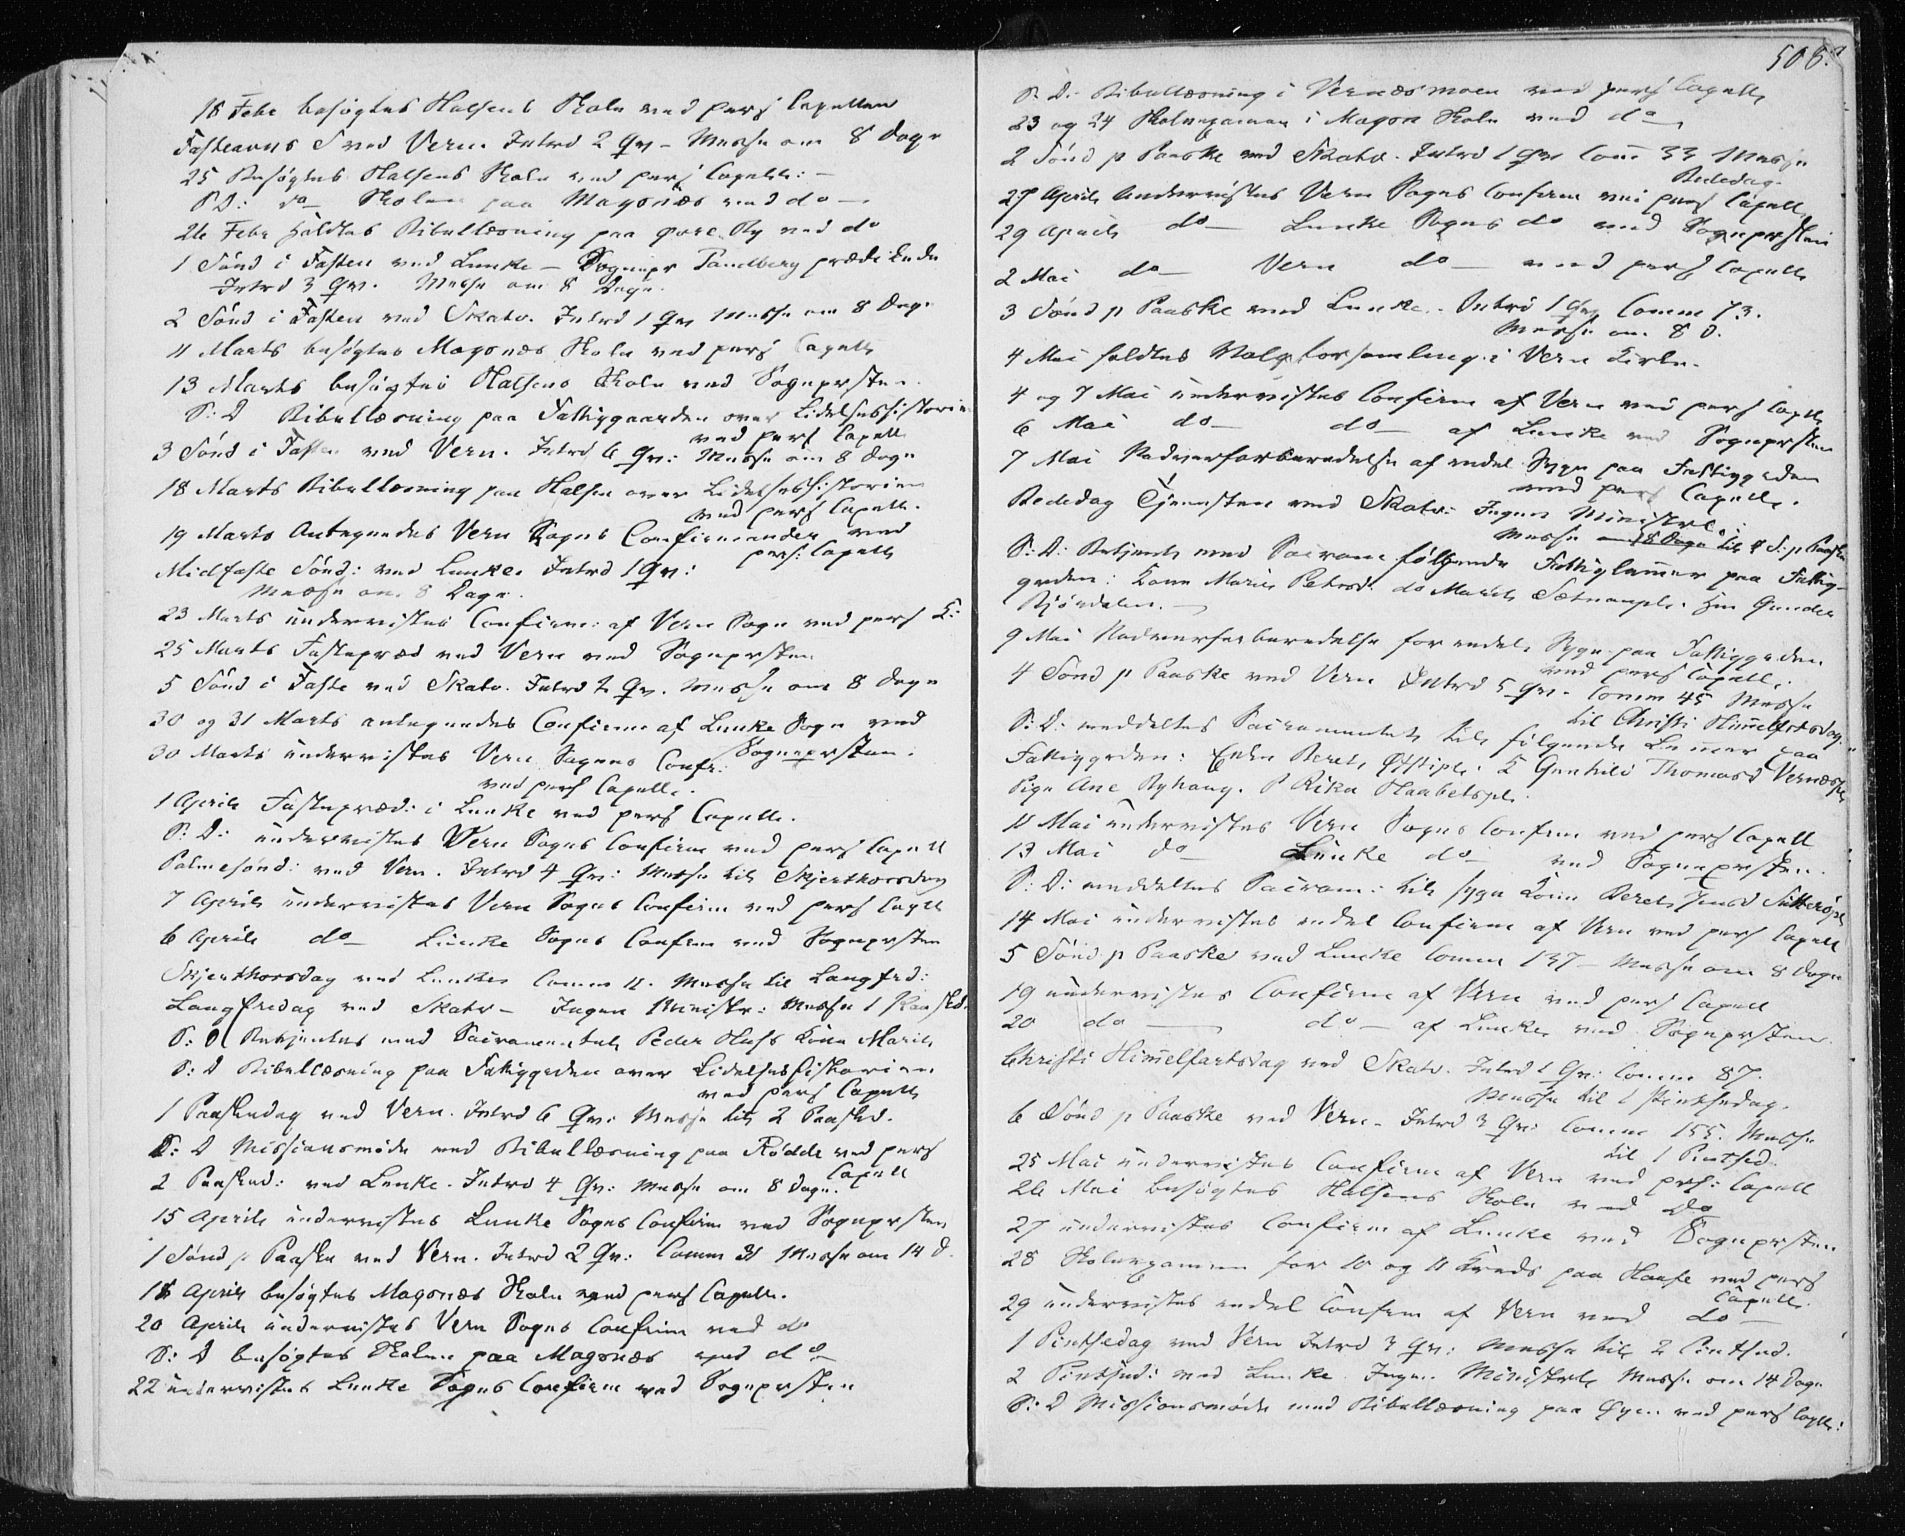 18 Febr besøgtes Halsens Skole ved pers Capellan
Fastelavns S ved Vern. Introd 2 Qv – Messe om 8 Dage
25 Besøgtes Halsens Skole ved pers Capell: –
S D: do Skolen paa Magsnæs ved do –
26 Febr holdtes Bibellæsning paa øvre By ved do
1 Sønd i Fasten ved Lunke – Sognepr Sandberg prædikede
Introd 3 Qv. Messe om 8 Dage.
2 Sønd i Fasten ved Skatv. Introd 1 Qv Messe om 8 Dage
11 Marts besøgtes Magsnæs Skole ved pers Capell
13 Marts besøgtes Halsens Skole ved Sogneprsten.
S: D Bibellæsning paa Fattiggaarden over Lidelseshistorien
ved pers Capell
3 Sønd i Fasten ved Vern. Introd 6 Qv: Messe om 8 Dage
18 Marts Bibellæsning paa Halsen over Lidelseshistorien
ved pers Capell.
19 Marts Antegnedes Vern Sogns Confirmander ved
pers: Capell
Midfaste Sønd: ved Lunke. Introd 1 Qv:
Messe om 8 Dage.
23 Marts undervistes Confirm: af Vern Sogn ved pers C:
25 Marts Fastepræd ved Vern ved Sogneprsten
5 Sønd i Faste ved Skatv. Introd 2 Qv. Messe om 8 Dage
30 og 31 Marts antegnedes Confirm af Lunke Sogn ved
Sogneprsten.
30 Marts undervistes Vern Sogns Confr:
ved pers Capell.
1 April Fastepræd: i Lunke ved pers Capell.
S: D: undervistes Vern Sogns Confirm ved pers Capell
Palmesønd: ved Vern. Introd 4 Qv: Messe til Skjerthorsdag
7 April undervistes Vern Sogns Confirm ved pers Capll
6 April do – Lunke Sogns Confirm ved Sogneprsten
Skjerthorsdag ved Lunke Comm 11. Messe til Langfrd:
Langfredag ved Skatv – Ingen Ministr: Messe 1 Paaskd.
S: D Betjentes med Sacramentet Peder Huss Kone Marit
S: D Bibellæsning paa Fattiggrden over Lidelseshistorien
ved pers Capell
1 Paaskedag ved Vern. Introd 6 Qv: Messe til 2 Paaskd.
S: D Missionsmøde med Bibellæsning paa Rødde ved pers
Capell
2 Paasked: ved Lunke. Introd 4 Qv: Messe om 8 Dage.
15 April undervistes Lunke Sogns Confirm ved Sogneprsten
1 Sønd p Paaske ved Vern. Introd 2 Qv: Comm 31 Messe om 14 D.
18 April besøgtes Magsnæs Skole ved pers Capell.
20 April undervistes Vern Sogns Confirm ved do
S: D besøgtes Skolen paa Magsnæs ved do –
22 undervistes Lunke Sogns Confirm ved Sogneprsten
508.
S: D: Bibellæsning i Vernæsmoen ved pers Capell
23 og 24 Skoleexamen i Magsn Skole ved do –
2 Sønd p Paaske ved Skatv. Introd 1 Qv Com 33 Messe
Bededag.
27 April undervistes Vern Sogns Confirm ved pers Capell
29 April do – Lunke Sogns do ved Sogneprsten
2 Mai do – Vern do – ved pers Capell
3 Sønd p Paaske ved Lunke. Introd 1 Qv Comm 73.
Messe om 8 D.
4 Mai holdtes Valgforsamling i Vern Kirke.
4 og 7 Mai undervistes Confirm af Vern ved pers Capll
6 Mai do – do – af Lunke ved Sogneprsten
7 Mai Nadverforberedelse af endel Syge paa Fattiggrden
ved pers Capell.
Bededag Tjenesten ved Skatv: Ingen Ministrl:
Messe om 8 Dage til 4 S: p Paaske
S: D: Betjent med Sacram følgende Fattiglemmer paa Fattig-
grden: Kone Marit Petersd. do Marit Sætnanpl. Hm Gunder
Bjørdalen. –
9 Mai Nadverforberedelse for endel Syge paa Fattiggrden
ved pers Capell.
4 Sønd p Paaske ved Vern Introd 5 Qv. Comm 45 Messe
til Christi Himmelfrtsdag.
S: D: meddeltes Sacramentet til følgende Lemmer paa
Fattiggrden: Enke Beret Østtipl. E Gunhild Thomasd Vernæspl
Pige Ane Byhaug. P Rika Haabetspl.
11 Mai undervistes Vern Sogns Confirm ved pers Capell
13 Mai do – Lunke do – ved Sogneprsten.
S: D: meddeltes Sacram: til syge Kone Beret Jensd Sutterøpl
14 Mai undervistes endel Confirm af Vern ved pers Capell
5 Sønd p Paaske ved Lunke Comm 137 – Messe om 8 Dage
19 undervistes Confirm af Vern ved pers Capell
20 do – do – af Lunke ved Sogneprsten.
Christi Himmelfartsdag ved Skatv. Introd 1 Qv: Comm 87.
Messe til 1 Pintsedag.
6 Sønd p Paaske ved Vern – Introd 3 Qv: Comm 155. Messe
til 1 Pintsed.
25 Mai undervistes Confirm af Vern ved prs: Capell
26 Mai besøgtes Halsens Skole ved do
27 undervistes Confirm af Lunke ved Sogneprsten
28 Skoleexamen for 10 og 11 Kreds paa Haafe ved pers
Capell.
29 undervistes endel Confirm af Vern ved do –
1 Pintsedag ved Vern Introd 3 Qv: Messe til 2 Pintsed.
2 Pintsed: ved Lunke. Ingen Ministrl Messe om 14 Dage
S: D Missionsmøde med Bibellæsning paa Øyen ved pers Capll: